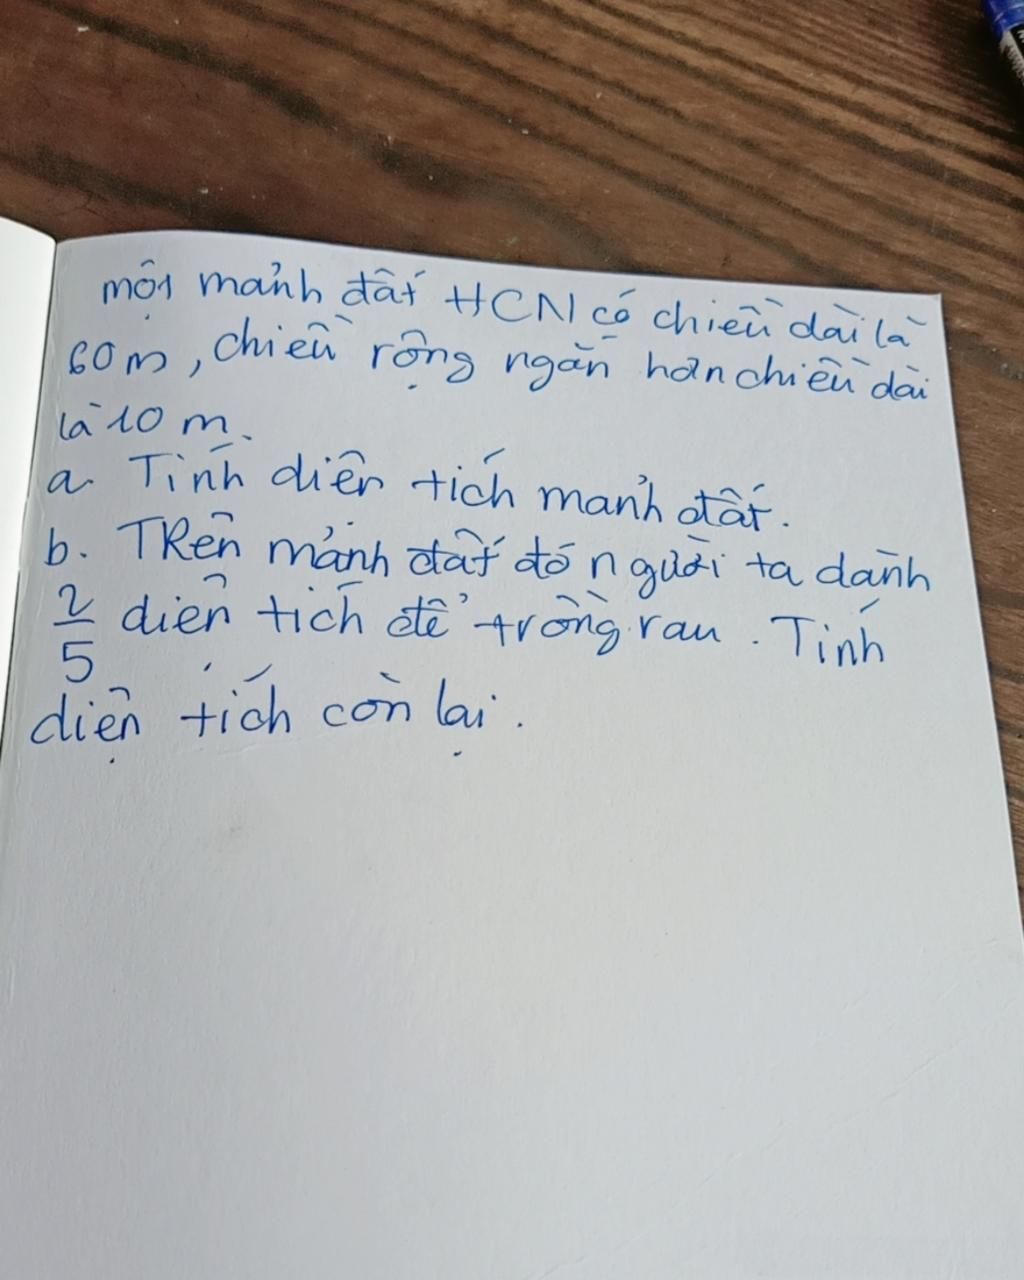 một mảnh đất HCN có chiều dài là
60m, chiều rộng ngắn hơn chiều dài
là 10 m.
a. Tính diện tích mảnh đất.
b. TRên mảnh đất đó người ta dành
2/5 diện tích để trồng rau. Tính
diện tích còn lại.